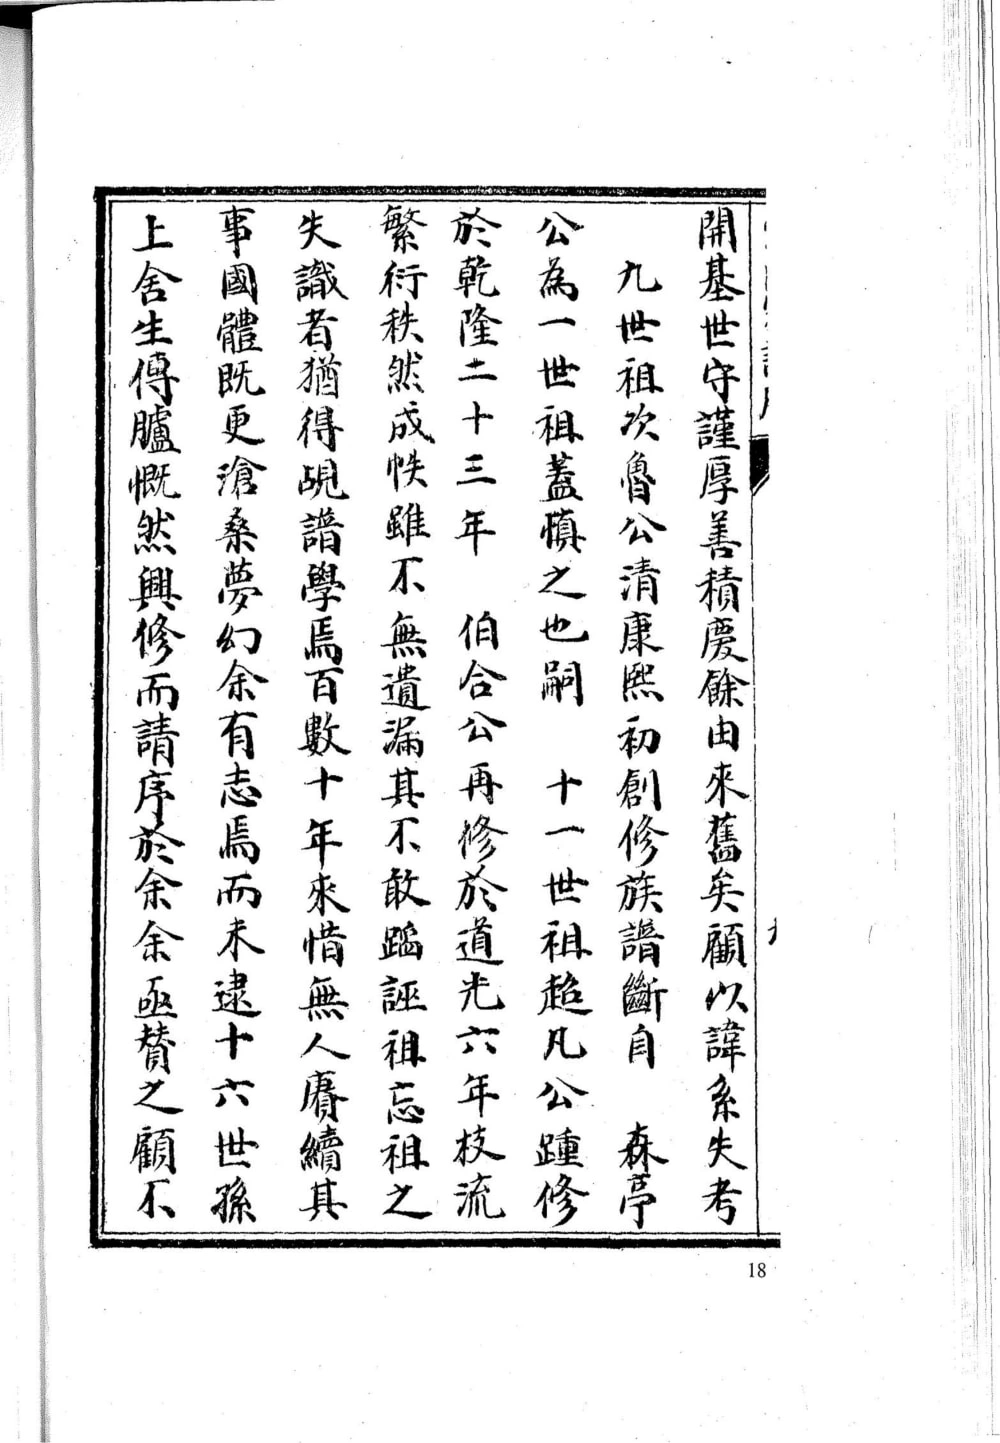 開基世守謹厚善積慶餘由來舊矣顧以諱系失考
九世祖次魯公清康熙初創修族譜斷自　森亭
公為一世祖蓋慎之也嗣　十一世祖超凡公踵修
於乾隆二十三年　伯合公再修於道光六年枝流
繁衍秩然成帙雖不無遺漏其不敢蹈誣祖忘祖之
失識者猶得覘譜學焉百數十年來惜無人賡續其
事國體既更滄桑夢幻余有志焉而未逮十六世孫
上舍生傳臚慨然興修而請序於余余亟贊之顧不
18